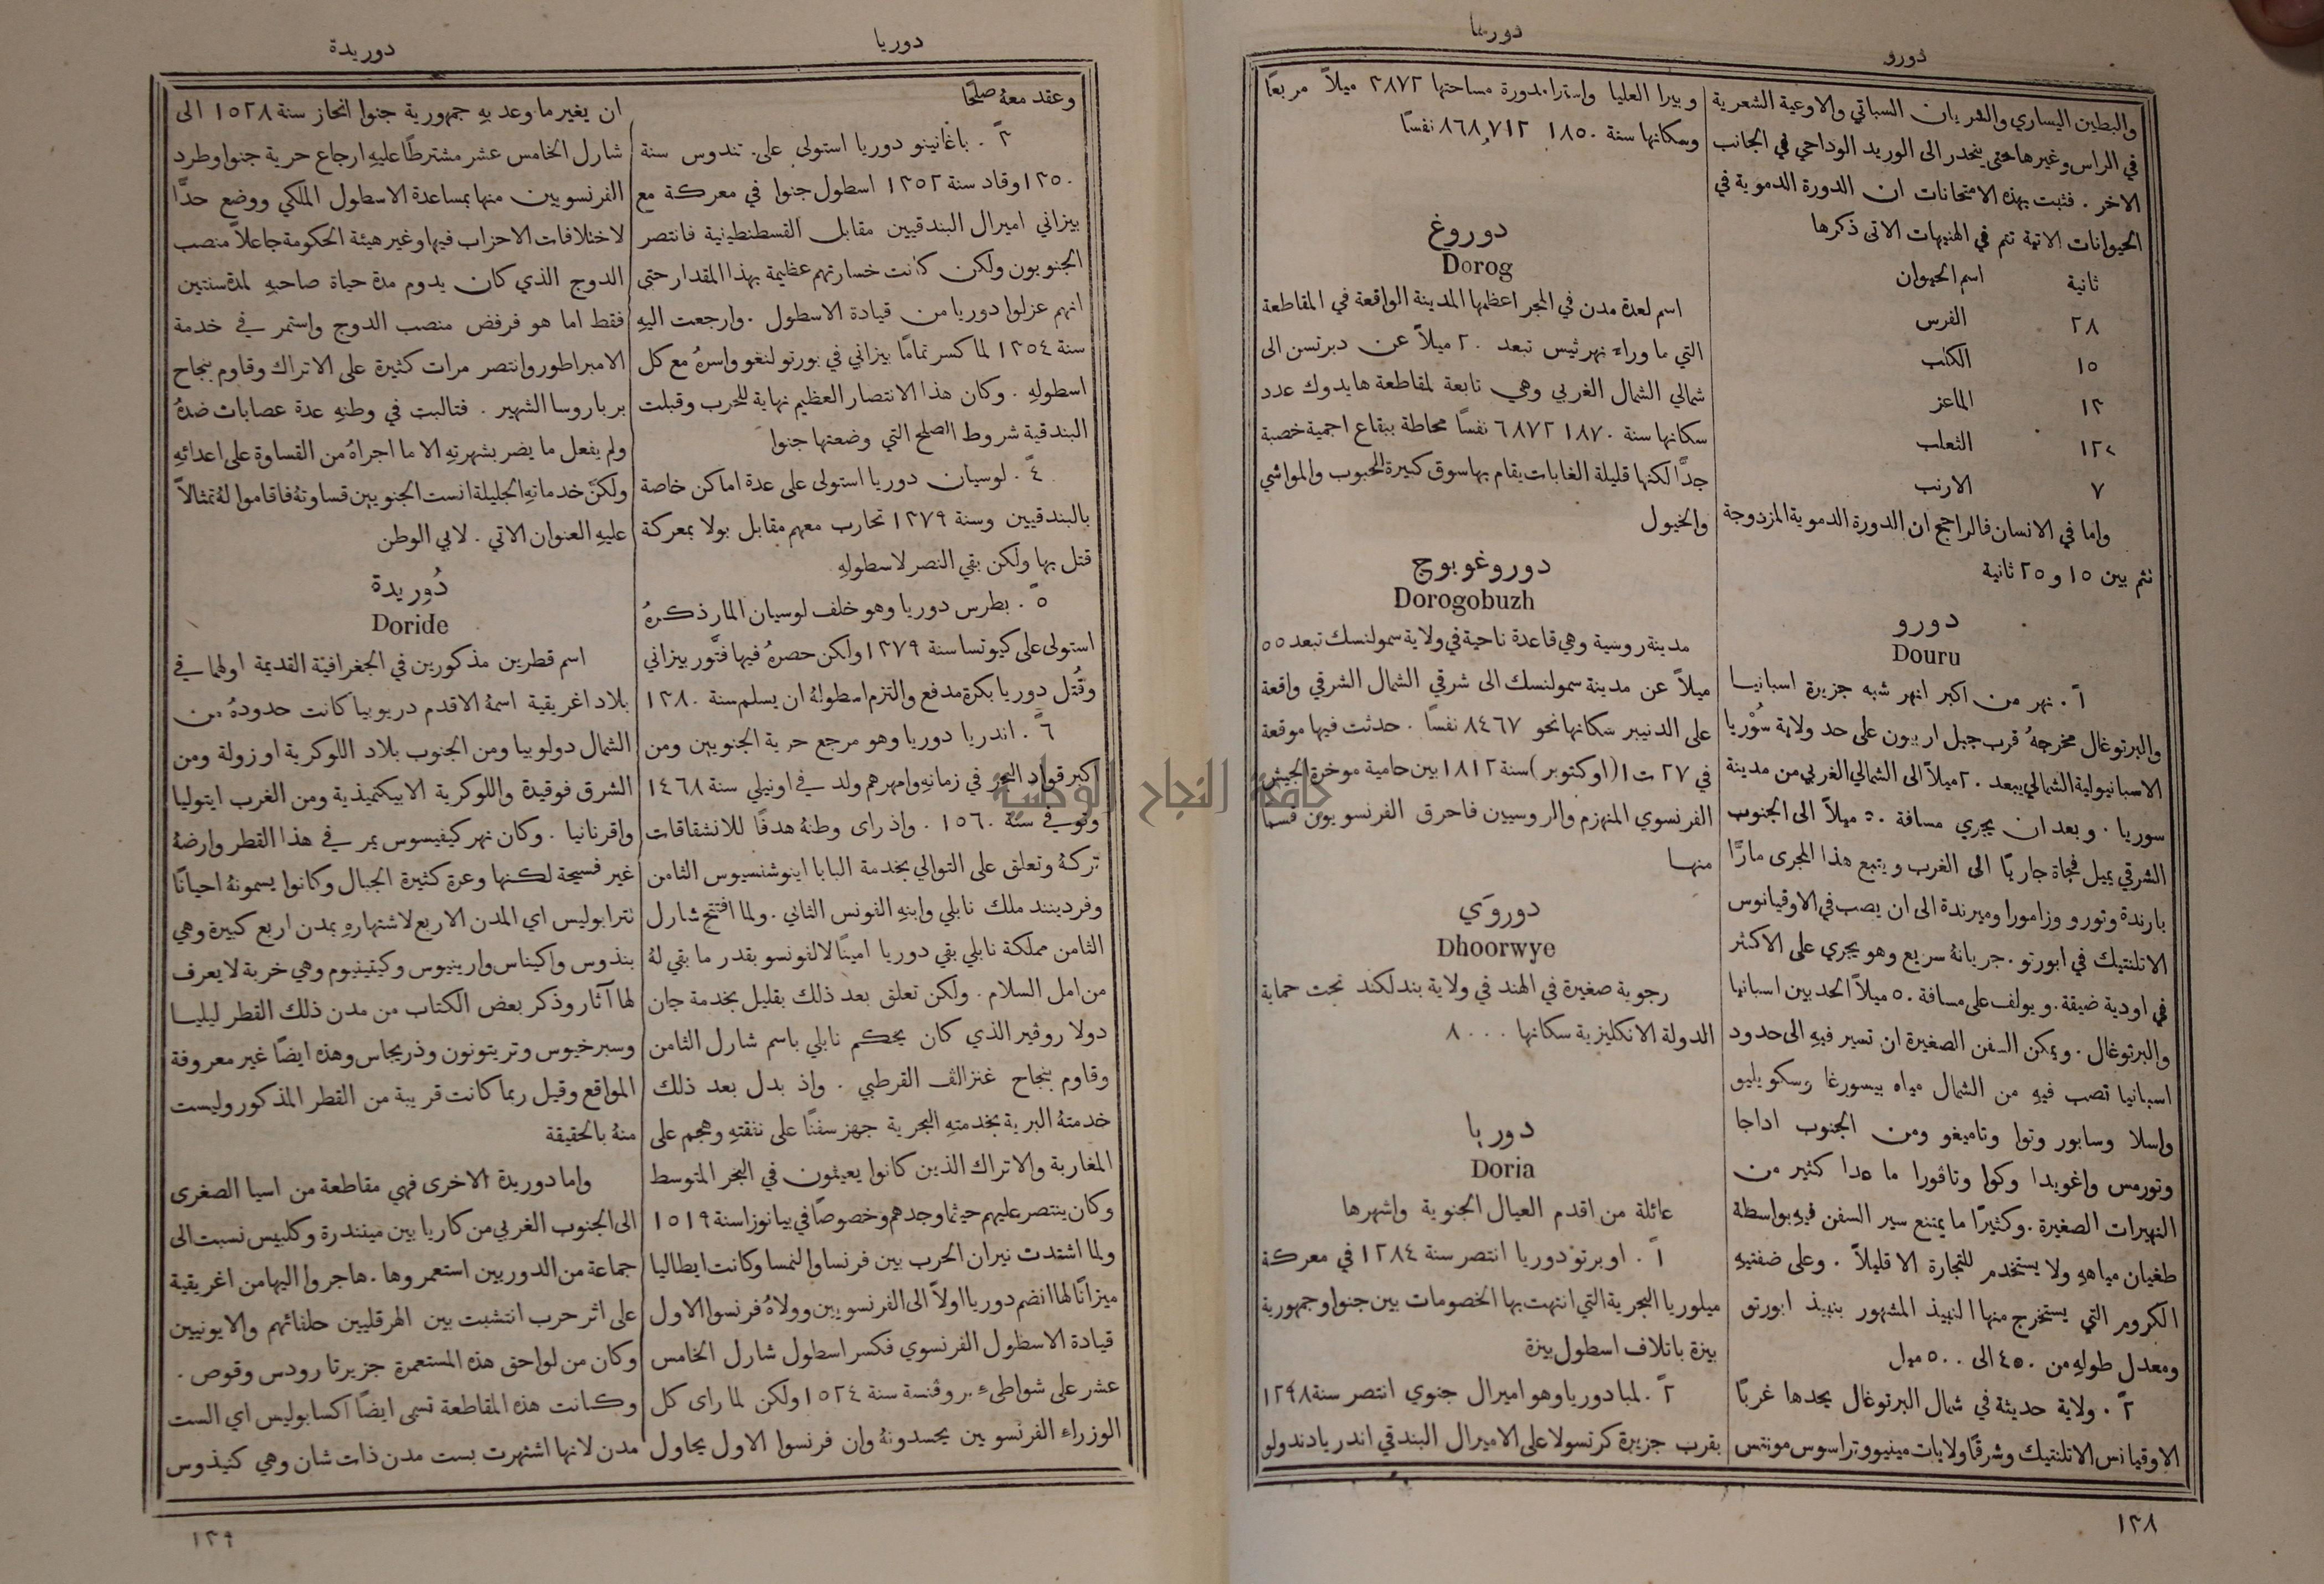 دورو
دوريا
والبطين اليساري والشريان السباتي والاوعية الشعرية
في الراس وغيرها حتى ينحدر الى الوريد الوداجي في الجانب
الاخر . فثبت بهذه الامتحانات ان الدورة الدموية في
الحيوانات الاتية تتم في الهنيهات الاتي ذكرها
ثانية اسم الحيوان
٢٨ الفرس
١٥ الكلب
١٣ الماعز
١٢ الثعلب
٧ الارنب
واما في الانسان فالراجح ان الدورة الدموية المزدوجة
تتم بين ١٥ و ٢٥ ثانية
دورو
Douru
اً . نهر من اكبر انهر شبه جزيرة اسبانيا
والبرتوغال مخرجهُ قرب جبل اربيون على حد ولاية سُوْريا
الاسبانيولية الشمالي يبعد ٢٠ ميلاً الى الشمالي الغربي من مدينة
سوريا . وبعد ان يجري مسافة ٥٠ ميلاً الى الجنوب
الشرقي يميل فجاة جاريًا الى الغرب ويتبع هذا المجرى مارًّا
بارندة وتورو وزامورا وميرندة الى ان يصب في الاوقيانوس
الاتلنتيك في ابورتو . جريانهُ سريع وهو يجري على الاكثر
في اودية ضيقة . ويولف على مسافة ٥٠ ميلاً الحد بين اسبانيا
والبرتوغال . ويمكن السفن الصغيرة ان تسير فيهِ الى حدود
اسبانيا تصب فيهِ من الشمال مياه بيسورغا وسكويليو
واسلا وسابور وتوا وتاميغو ومن الجنوب اداجا
وتورمس واغويدا وكوا وتاڤورا ما عدا كثير من
النهيرات الصغيرة . وكثيرًا ما يمتنع سير السفن فيهِ بواسطة
طغيان مياههِ ولا يستخدم للتجارة الا قليلاً . وعلى ضفتيهِ
الكروم التي يستخرج منها النبيذ المشهور بنبيذ ابورتو
ومعدل طولهِ من ٤٥٠ الى ٥٠٠ ميل
٢ً . ولاية حديثة في شمال البرتوغال يحدها غربًا
الاوقيانس الاتلنتيك وشرقًا ولايات مينيو وتراسوس مونتس
وبيرا العليا واسترامدورة مساحتها ٢٨٧٢ ميلاً مربعًا
وسكانها سنة ١٨٥٠ ٨٦٨,٧١٢ نفسًا
دوروغ
Dorog
اسم لعدة مدن في المجر اعظمها المدينة الواقعة في المقاطعة
التي ما وراء نهر ثيس تبعد ٢٠ ميلاً عن دبرتسن الى
شمالي الشمال الغربي وهي تابعة لمقاطعة هايدوك عدد
سكانها سنة ١٨٧٠ ٦٨٧٢ نفسًا محاطة ببقاع اجمية خصبة
جدًّا لكنها قليلة الغابات يقام بها سوق كبيرة للحبوب والمواشي
والخيول
دوروغوبوج
Dorogobuzh
مدينة روسية وهي قاعدة ناحية في ولاية سمولنسك تبعد ٥٥
ميلاً عن مدينة سمولنسك الى شرقي الشمال الشرقي واقعة
على الدنيبر سكانها نحو ٨٤٦٧ نفسًا . حدثت فيها موقعة
في ٢٧ ت ١ (اوكتوبر) سنة ١٨١٢ بين حامية موخرة الجيش
الفرنسوي المنهزم والروسيين فاحرق الفرنسويون قسمًا
منها
دوروَي
Dhoorwye
رجوية صغيرة في الهند في ولاية بندلكند تحت حماية
الدولة الانكليزية سكانها ٨٠٠٠
دوريا
Doria
عائلة من اقدم العيال الجنوية واشهرها
اً . اوبرتو دوريا انتصر سنة ١٢٨٤ في معركة
ميلوريا البحرية التي انتهت بها الخصومات بين جنوا وجمهورية
بيزة باتلاف اسطول بيزة
٢ً . لمبا دوريا وهو اميرال جنوي انتصر سنة ١٢٩٨
بقرب جزيرة كرتسولا على الاميرال البندقي اندريا دندولو
١٣٨
دوريا
دوريدة
وعقد معهُ صلحًا
٣ً . باغانينو دوريا استولى على تندوس سنة
١٣٥٠ وقاد سنة ١٣٥٢ اسطول جنوا في معركة مع
بيزاني اميرال البندقيين مقابل القسطنطينية فانتصر
الجنويون ولكن كانت خسارتهم عظيمة بهذا المقدار حتى
انهم عزلوا دوريا من قيادة الاسطول . وارجعت اليهِ
سنة ١٣٥٤ لما كسر تمامًا بيزاني في بورتو لنغو واسرهُ مع كل
اسطولهِ . وكان هذا الانتصار العظيم نهاية للحرب وقبلت
البندقية شروط الصلح التي وضعتها جنوا
٤ً . لوسيان دوريا استولى على عدة اماكن خاصة
بالبندقيين وسنة ١٣٧٩ تحارب معهم مقابل بولا بمعركة
قتل بها ولكن بقي النصر لاسطولهِ
٥ً . بطرس دوريا وهو خلف لوسيان المار ذكرهُ
استولى على كيوتسا سنة ١٣٧٩ ولكن حصرهُ فيها ڤتّور بيزاني
وقُتل دوريا بكرة مدفع والتزم اسطولهُ ان يسلم سنة ١٣٨٠
٦ً . اندريا دوريا وهو مرجع حرية الجنويين ومن
اكبر قواد البحر في زمانهِ وامهرهم ولد في اونيلي سنة ١٤٦٨
وتوفي سنة ١٥٦٠ . واذ راى وطنهُ هدفًا للانشقاقات
تركهُ وتعلق على التوالي بخدمة البابا اينوشنسيوس الثامن
وفردينند ملك نابلي وابنهِ الفونس الثاني . ولما افتتح شارل
الثامن مملكة نابلي بقي دوريا امينًا لالفونسو بقدر ما بقي لهُ
من امل السلام . ولكن تعلق بعد ذلك بقليل بخدمة جان
دولا روڤير الذي كان يحكم نابلي باسم شارل الثامن
وقاوم بنجاح غنزالف القرطبي . واذ بدل بعد ذلك
خدمتهُ البرية بخدمتهِ البحرية جهز سفنًا على نفقتهِ وهجم على
المغاربة والاتراك الذين كانوا يعيثون في البحر المتوسط
وكان ينتصر عليهم حيثما وجدهم وخصوصًا في بيانوزا سنة ١٥١٩
ولما اشتدت نيران الحرب بين فرنسا والنمسا وكانت ايطاليا
ميزانًا لها انضم دوريا اولاً الى الفرنسويين وولاهُ فرنسوا الاول
قيادة الاسطول الفرنسوي فكسر اسطول شارل الخامس
عشر على شواطىء بروڤنسة سنة ١٥٢٤ ولكن لما راى كل
الوزراء الفرنسويين يحسدونهُ وان فرنسوا الاول يحاول
ان يغير ما وعد بهِ جمهورية جنوا انحاز سنة ١٥٢٨ الى
شارل الخامس عشر مشترطًا عليهِ ارجاع حرية جنوا وطرد
الفرنسويين منها بمساعدة الاسطول الملكي ووضع حدًّا
لاختلافات الاحزاب فيها وغير هيئة الحكومة جاعلاً منصب
الدوج الذي كان يدوم مدة حياة صاحبهِ لمدة سنتين
فقط اما هو فرفض منصب الدوج واستمر في خدمة
الامبراطور وانتصر مرات كثيرة على الاتراك وقاوم بنجاح
برباروسا الشهير . فتالبت في وطنهِ عدة عصابات ضدهُ
ولم يفعل ما يضر بشهرتهِ الا ما اجراهُ من القساوة على اعدائهِ
ولكنّ خدماتهِ الجليلة انست الجنويين قساوتهُ فاقاموا لهُ تمثالاً
عليهِ العنوان الاتي . لابي الوطن
دُوريدة
Doride
اسم قطرين مذكورين في الجغرافية القديمة اولهما في
بلاد اغريقية اسمهُ الاقدم دريوبيا كانت حدودهُ من
الشمال دولوبيا ومن الجنوب بلاد اللوكرية اوزولة ومن
الشرق فوقيدة واللوكرية الابيكنميذية ومن الغرب ايتوليا
واقرنانيا . وكان نهر كيفيسوس يمر في هذا القطر وارضهُ
غير فسيحة لكنها وعرة كثيرة الجبال وكانوا يسمونهُ احيانًا
تترابوليس اي المدن الاربع لاشتهارهِ بمدن اربع كبيرة وهي
بنذوس واكيناس وارينيوس وكيتينيوم وهي خربة لا يعرف
لها آثار وذكر بعض الكتاب من مدن ذلك القطر ليليا
وسبرخيوس وتريتونون وذريجاس وهذه ايضًا غير معروفة
المواقع وقيل ربما كانت قريبة من القطر المذكور وليست
منهُ بالحقيقة
واما دوريدة الاخرى فهي مقاطعة من اسيا الصغرى
الى الجنوب الغربي من كاريا بين ميندرة وكلبيس نسبت الى
جماعة من الدوريين استعمروها . هاجروا اليها من اغريقية
على اثر حرب انتشبت بين الهرقليين حلفائهم والايونيين
وكان من لواحق هذه المستعمرة جزيرتا رودس وقوص .
وكانت هذه المقاطعة تسمى ايضًا اكسابوليس اي الست
مدن لانها اشتهرت بست مدن ذات شان وهي كنيذوس
١٣٩
جامعة النجاح الوطنية